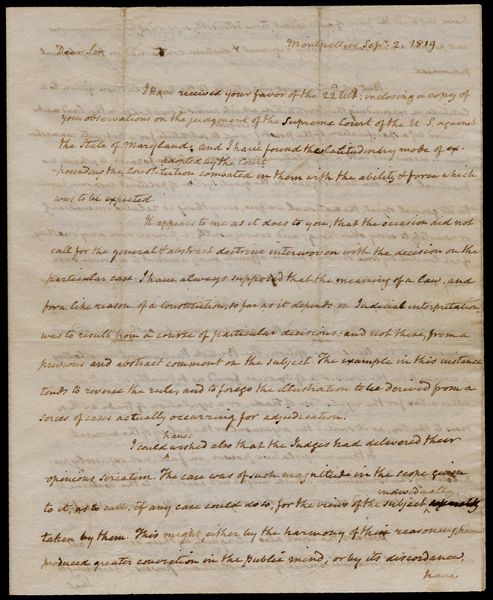 Montpellier Sepr. 2. 1819
Dear Sir
I have received your favor of the 22d Ult. inclosing a copy of
your observations on the judgment of the Supreme Court of the U S. against
the State of Maryland; and I have found the latitudinary mode of ex-
adopted by the Court
pounding the Constitution combated in them with the ability & force which
was to be expected.
It appears to me as it does to you, that the occasion did not
call for the general & abstract doctrine interwoven with the decision on the
particular case. I have always supposed that the meaning of a law, and
for a like reason, of a Constitution, so far as it depends on Judicial interpretation,
was to result from a course of particular decisions, and not these, from a
previous and abstract comment on the subject. The example in this instance
tends to reverse the rule, and to forego the illustration to be derived from a
series of cases actually occurring for adjudication.
have
I could wished also that the Judges had delivered their
opinions seriatim. The case was of such magnitude in the scope given
to it, as to call, if any case could do so, for the views of the subject
individually
taken by them. This might, either by the harmony of their reasoning, have
produced greater conviction in the public mind; or by its discordance,
have